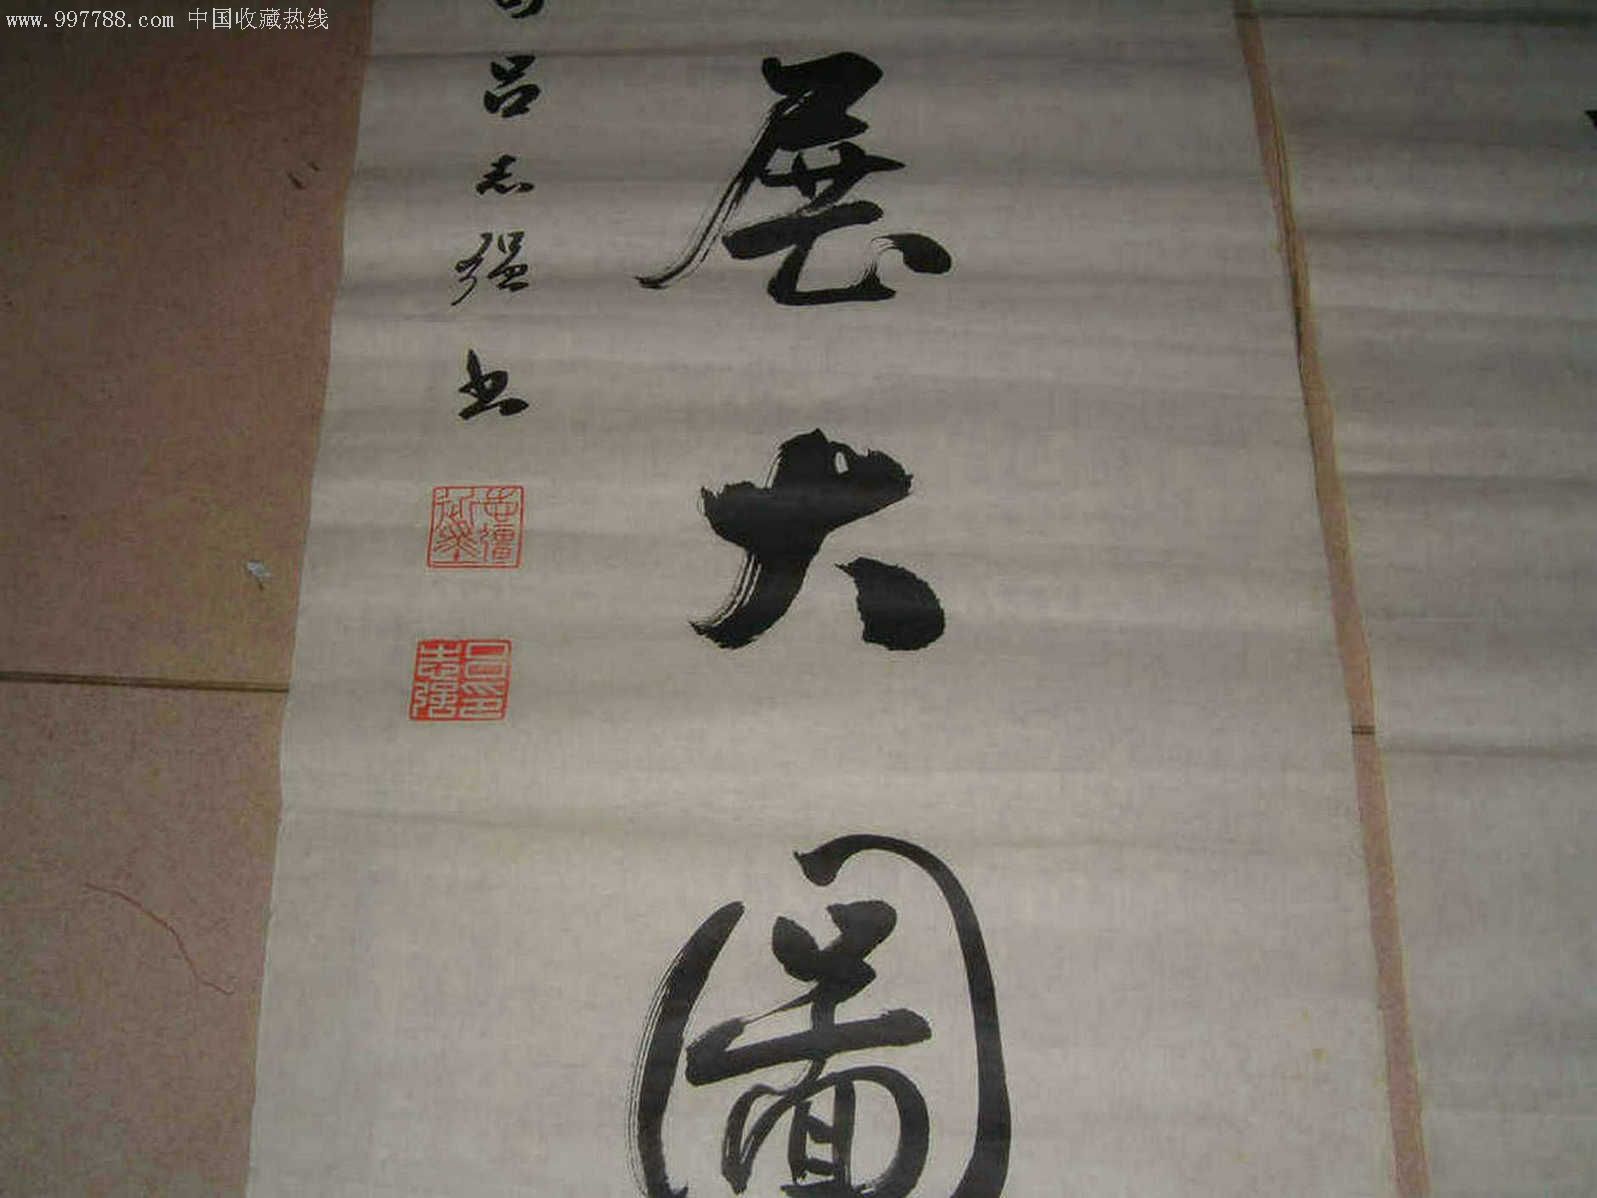 www.997788.com 中国收藏热线
展大圖
吕志强书
吕志强印